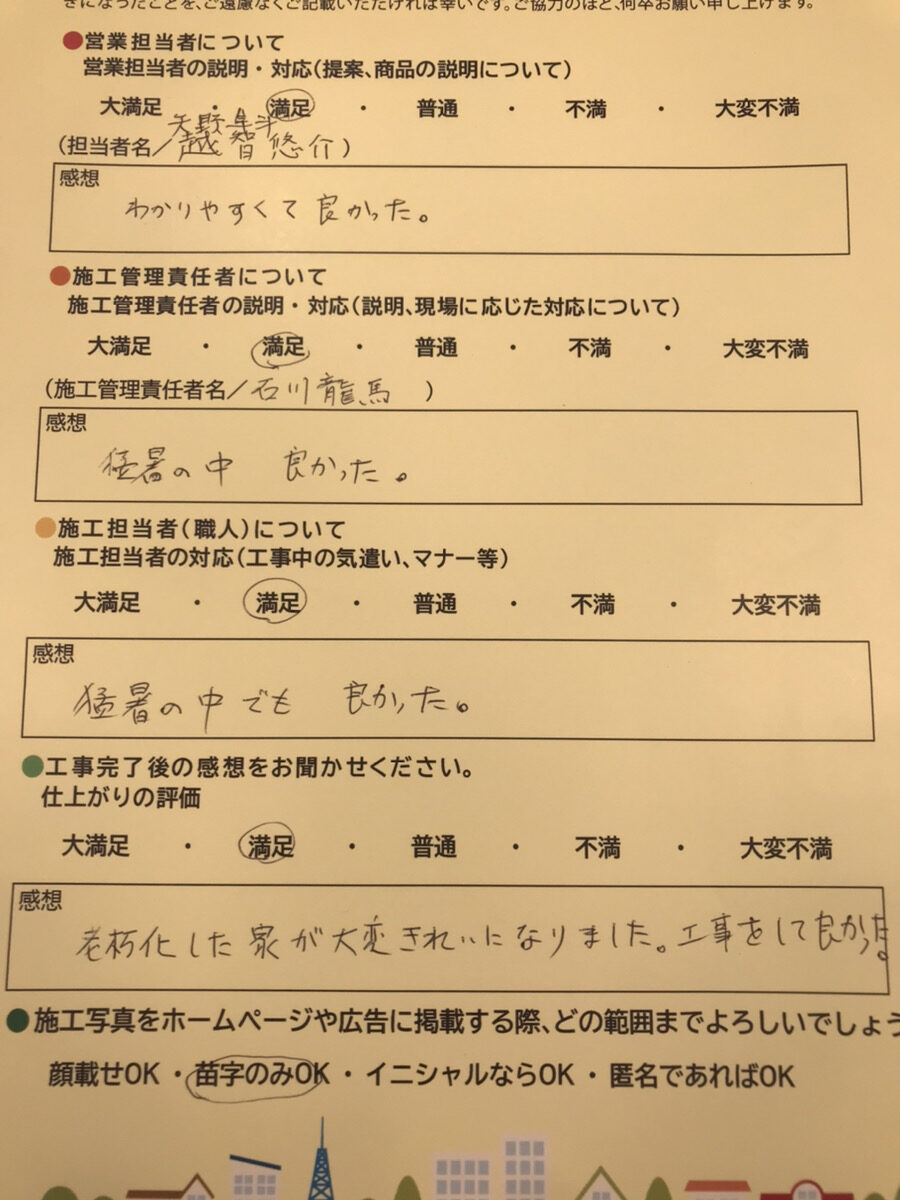 きになったことを、ご遠慮なくご記載いただければ幸いです。ご協力のほど、何卒お願い申し上げます。
●営業担当者について
営業担当者の説明・対応(提案、商品の説明について)
大満足 ・ 満足 ・ 普通 ・ 不満 ・ 大変不満
矢野
(担当者名/越智悠介)
感想
わかりやすくて良かった。
●施工管理責任者について
施工管理責任者の説明・対応(説明、現場に応じた対応について)
大満足 ・ 満足 ・ 普通 ・ 不満 ・ 大変不満
(施工管理責任者名/石川龍馬 )
感想
猛暑の中 良かった。
●施工担当者(職人)について
施工担当者の対応(工事中の気遣い、マナー等)
大満足 ・ 満足 ・ 普通 ・ 不満 ・ 大変不満
感想
猛暑の中でも 良かった。
●工事完了後の感想をお聞かせください。
仕上がりの評価
大満足 ・ 満足 ・ 普通 ・ 不満 ・ 大変不満
感想
老朽化した家が大変きれいになりました。工事をして良かった。
●施工写真をホームページや広告に掲載する際、どの範囲までよろしいでしょう
顔載せOK ・ 苗字のみOK ・ イニシャルならOK ・ 匿名であればOK